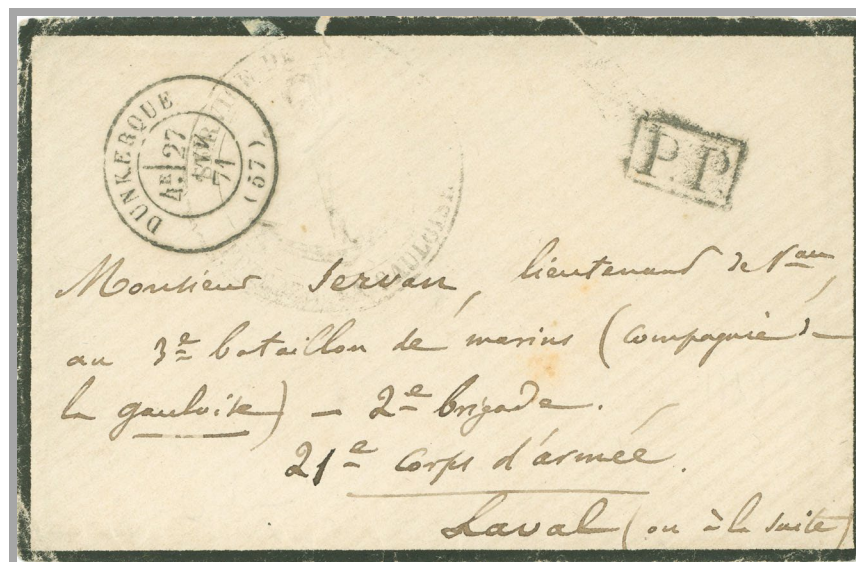 DUNKERQUE (57)
4E 27
FEVR
71
P.P.
Monsieur Servan, lieutenant de Vau,
au 3e bataillon de marins (compagnie de
la gauloise) — 2e brigade.
21e corps d'armée.
Laval (ou à la suite)